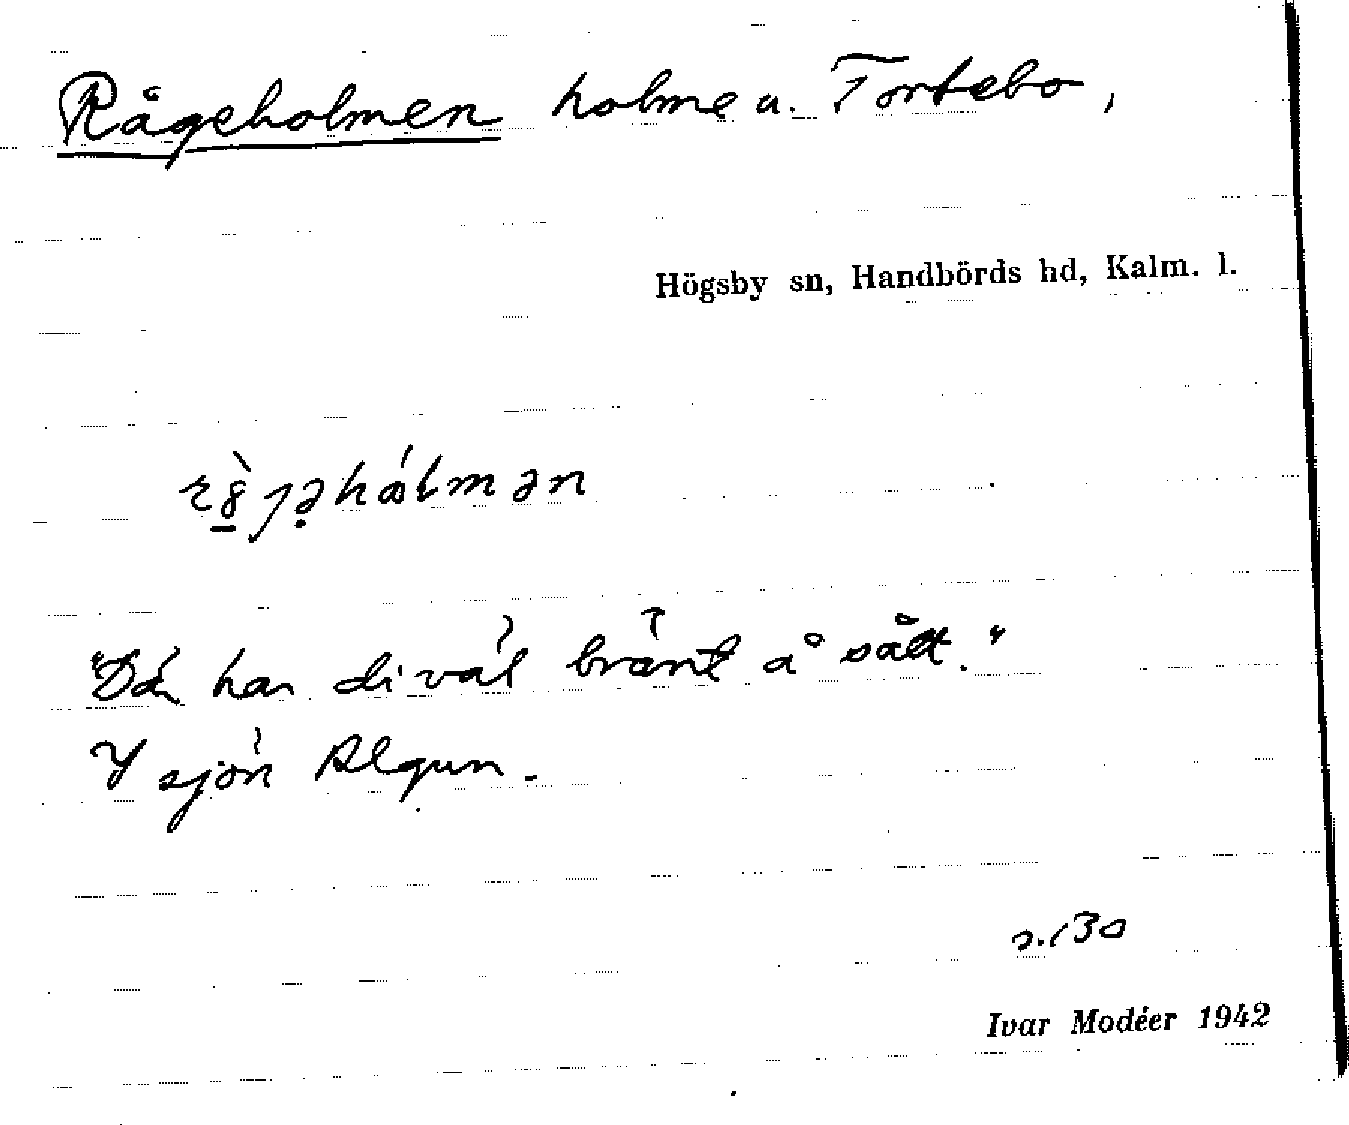 Rågeholmen holme u. Tortebo,
Högsby sn, Handbörds hd, Kalm. l.
"Dä har di väl bränt å sått."
I sjön Algun.
s. 130
Ivar Modéer 1942